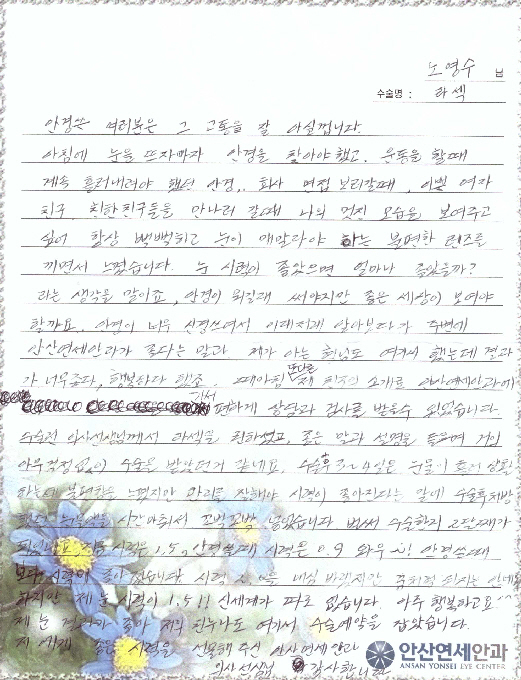 노영수 님
수술명 : 라섹
안경쓴 여러분은 그 고통을 잘 아실껍니다.
아침에 눈을 뜨자마자 안경을 찾아야 했고. 운동을 할때
계속 흘러내려야 했던 안경,, 회사 면접 보러갈때, 이쁜 여자
친구, 친한친구들을 만나러 갈때 나의 멋진 모습을 보여주고
싶어 항상 뻑뻑하고 눈이 매말라야 하는 불편한 렌즈를
끼면서 느꼈습니다. 눈 시력이 좋았으면 얼마나 좋았을까?
라는 생각을 말이죠, 안경이 뭐길래 써야지만 좋은 세상이 보여야
할까요. 안경이 너무 신경쓰여서 이래저래 알아보다가 주변에
안산연세안과가 좋다는 말과 제가 아는 형님도 여기서 했는데 결과
가 너무좋다, 행복하다 했죠. 때마침 또다른 제 친구의 소개로 안산연세안과에
가서 편하게 상담과 검사를 받을수 있었습니다.
수술전 의사선생님께서 라섹을 권하셨고, 좋은 말과 설명을 들으며
아무걱정없이 수술을 받았던거 같네요. 수술후 3~4일은 눈물이 흘러
하는데 불편함을 느꼈지만 관리를 잘해야 시력이 좋아진다는 말에 수술후 처방
했던 안약을 시간마춰서 꼬박꼬박 넣었습니다. 벌써 수술한지 2달째가
시력은 1.5, 안경쓸때 시력은 0.9 와우~!! 안경쓸때
보다 시력이 좋아졌습니다. 시력
하지만 제 눈 시력이 1.5!! 신세계가 따로 없습니다. 아주 행복하고요^^
제 눈 결과가 좋아 제 친구도 여기서 수술예약을 잡았습니다.
저에게 좋은 시력을 선물해 주신 안산연세안과
의사선생님 감사합니다
안산연세안과
ANSAN YONSEI EYE CENTER